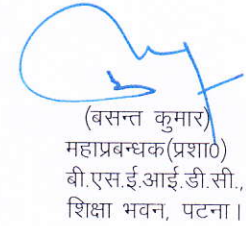 (बसन्त कुमार)
महाप्रबन्धक(प्रशा0)
बी.एस.ई.आई.डी.सी.,
शिक्षा भवन, पटना।